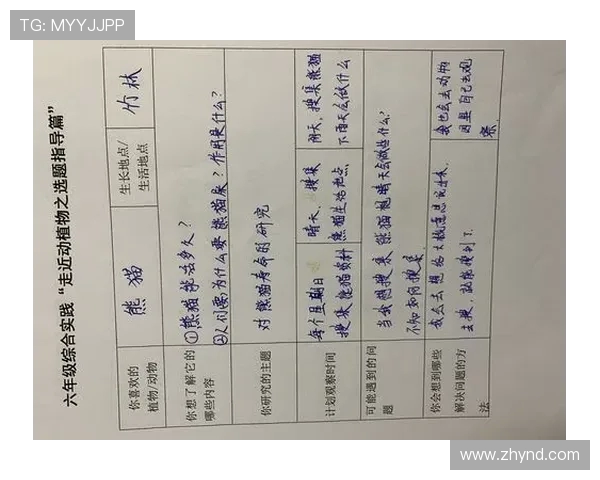 TG: MYYJJPP
六年级综合实践“走近动植物之选题指导篇”
你喜欢的
植物/动物
熊猫
生长地点/
生活地点
竹林
你想了解它的
哪些内容
①熊猫能活多久?
②人们要为什么要熊猫来?作用是什么?
你研究的主题
对熊猫寿命的研究
计划观察时间
每个星期日
搜集熊猫资料
晴天,搜集
熊猫生活地点
阴天,搜集熊猫
下雨天会做什么
可能遇到的问
题
当我想搜集熊猫晴天会做些什么?
不知如何搜案
你会想到哪些
解决问题的方
法
我会去想给大概意思说出来,
去搜,就能搜到了.
我也会去动物
园里自己去观
察.
www.zhynd.com